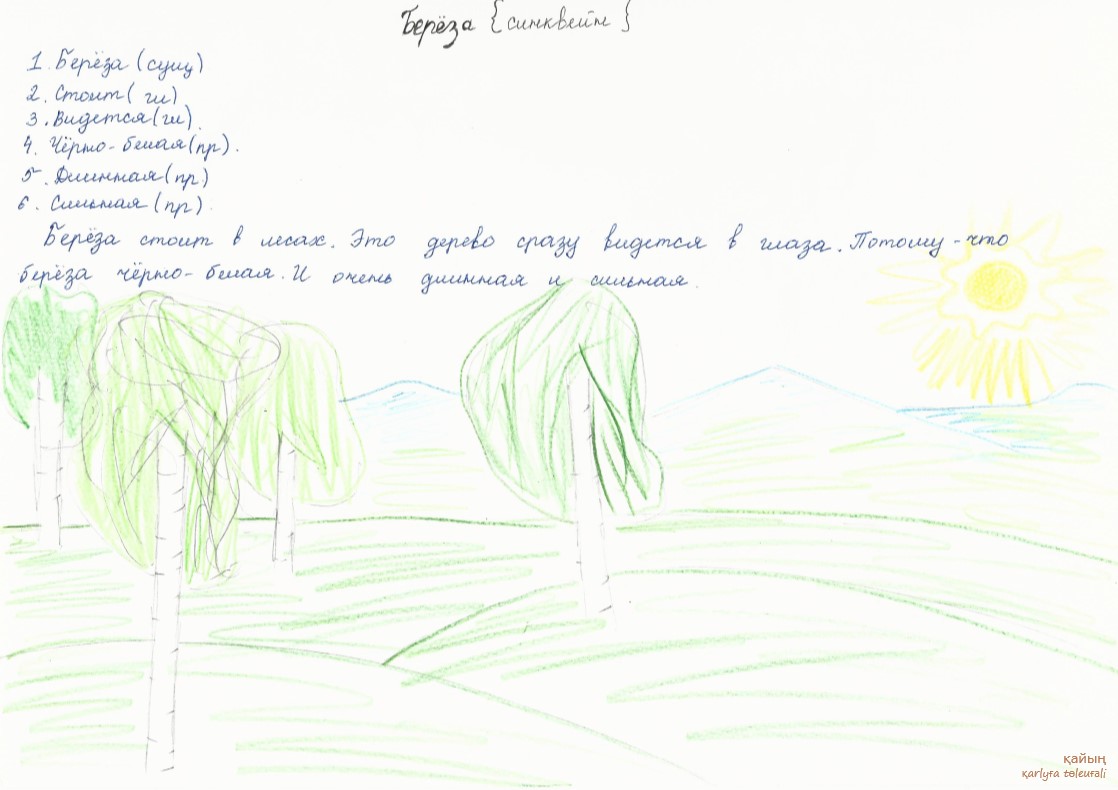 Берёза {синквейн}
1. Берёза (сущ)
2. Стоит (гл)
3. Видется (гл).
4. Чёрно-белая (пр).
5. Длинная (пр)
6. Сильная (пр).
Берёза стоит в лесах. Это дерево сразу видется в глаза. Потому-что
берёза чёрно-белая. И очень длинная и сильная.
қайың
qarlyǵa tóleuǵali